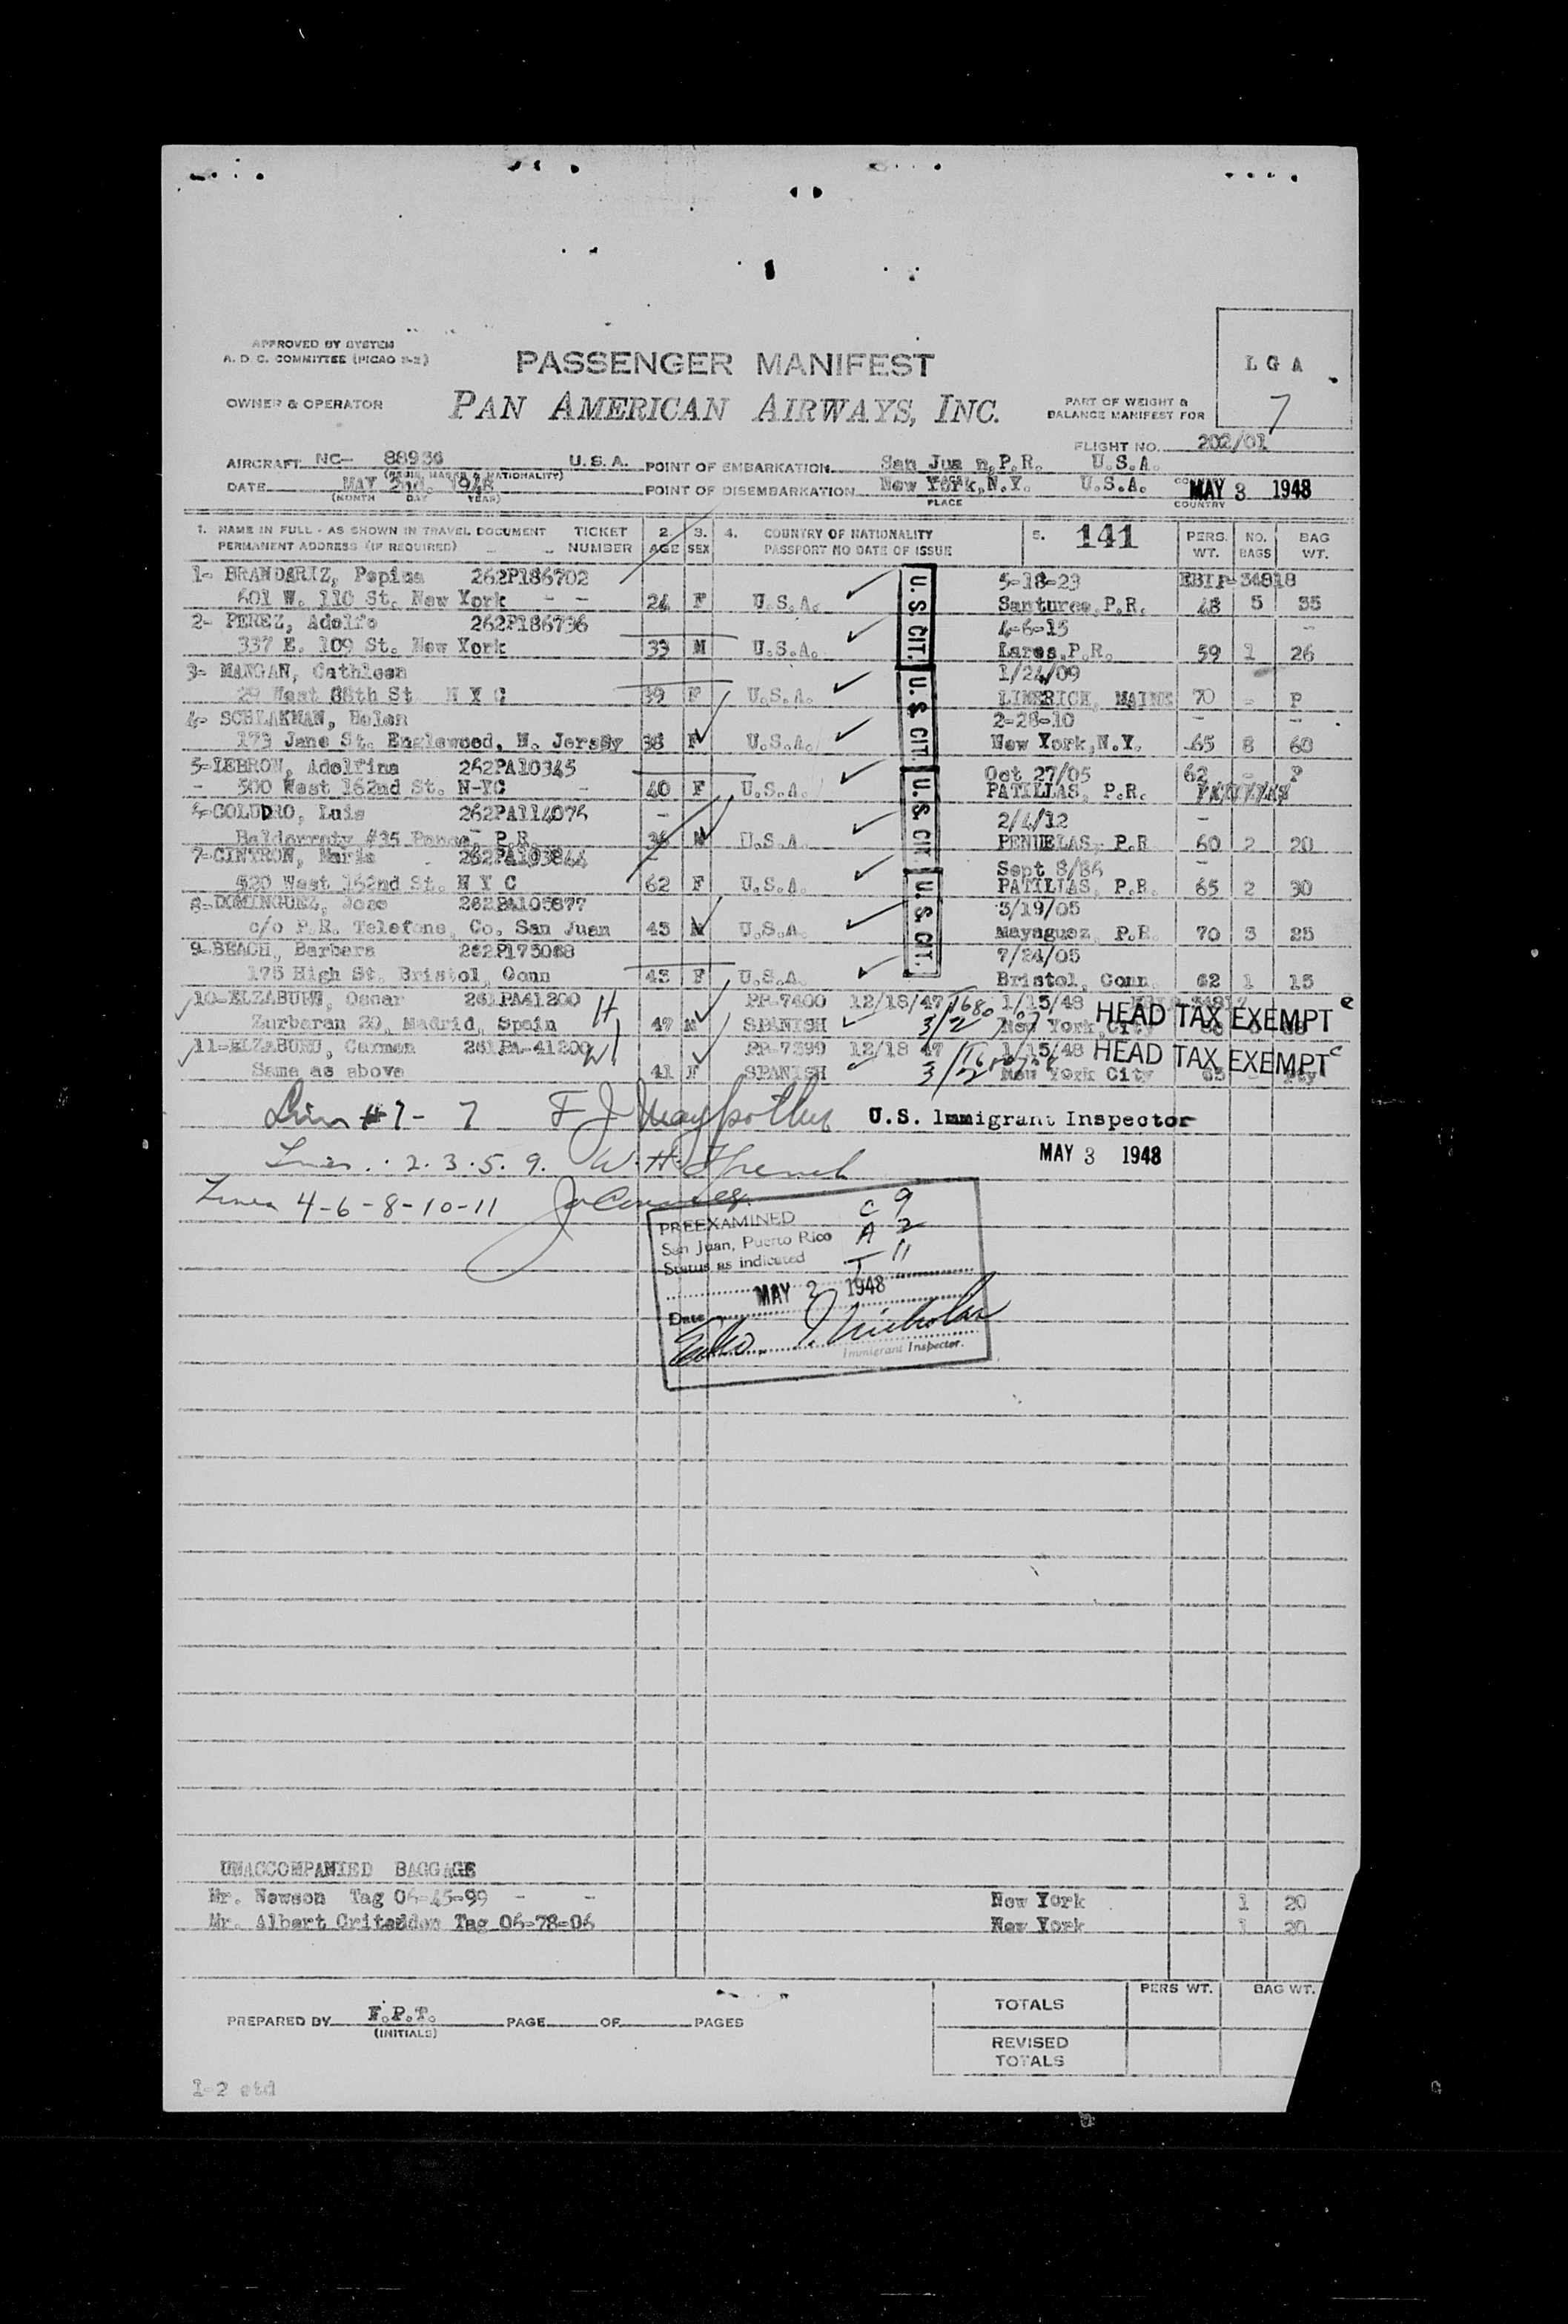 APPROVED BY SYSTEM
A. D. C. COMMITTEE (PICAO 2-2)
PASSENGER MANIFEST
LGA
7
OWNER & OPERATOR
PAN AMERICAN AIRWAYS, INC.
PART OF WEIGHT &
BALANCE MANIFEST FOR
FLIGHT NO. 202/01
AIRCRAFT NC- 88936 U.S.A. POINT OF EMBARKATION San Jua n,P.R. U.S.A.
DATE MAY 2nd. 1948 POINT OF DISEMBARKATION New York,N.Y. U.S.A. MAY 3 1948
(MONTH DAY YEAR) PLACE COUNTRY
1. NAME IN FULL - AS SHOWN IN TRAVEL DOCUMENT TICKET 2. 3. 4. COUNTRY OF NATIONALITY 5. 141 PERS. NO. BAG
PERMANENT ADDRESS (IF REQUIRED) NUMBER AGE SEX PASSPORT NO DATE OF ISSUE WT. BAGS WT.
1- BRANDARIZ, Pepica 262P186702 5-18-23 34818
601 W. 110 St. New York - - 24 F U.S.A. Santurce,P.R. 48 5 55
2- PEREZ, Adolfo 262P186736 4-6-15
337 E. 109 St. New York 33 M U.S.A. Lares,P.R. 59 1 26
3- MANGAN, Cathleen 1/24/09
29 West 88th St N Y C 39 F U.S.A. LIMERICK, MAINE 70 - P
4- SCHLAKMAN, Helen 2-28-10
173 Jane St. Englewood, N. Jersey 38 F U.S.A. New York,N.Y. 65 8 60
5-LEBRON, Adolfina 262PA10345 Oct 27/05 62 - P
- 500 West 162nd St. N-YC - 40 F U.S.A. PATILLAS, P.R.
6-COLUDRO, Luis 262PA114076 2/4/12
Baldorroty #35 Ponce, P.R. 36 M U.S.A. PENUELAS, P.R 60 2 20
7-CINTRON, Maria 262PA103844 Sept 8/86
520 West 162nd St. N Y C 62 F U.S.A. PATILLAS, P.R. 65 2 30
8-DOMINGUEZ, Jose 262PA105877 3/19/05
c/o P.R. Telefone, Co. San Juan 43 M U.S.A. Mayaguez, P.R. 70 3 25
9-BEACH, Barbara 262P175068 7/24/05
175 High St. Bristol, Conn 43 F U.S.A. Bristol, Conn 62 1 15
U.S. CIT.
U.S. CIT.
U.S. CIT.
U.S. CIT.
10-ELZABURU, Oscar 261PA41200 H PP-7400 12/18/47 1/15/48 HEAD TAX EXEMPT
Zurbaran 20, Madrid, Spain 47 M SPANISH New York City
11-ELZABURU, Carmen 261PA-41200 W PP-7399 12/18 47 1/15/48 HEAD TAX EXEMPT
Same as above 41 F SPANISH New York City
U.S. Immigrant Inspector
Lines: 2.3.5.9. W. H. French MAY 3 1948
Lines 4-6-8-10-11
PREEXAMINED C 9
San Juan, Puerto Rico A 2
Status as indicated T 11
MAY 2 1948
Date
Immigrant Inspector.
UNACCOMPANIED BAGGAGE
Mr. Newson Tag 06-45-99 - - New York 1 20
Mr. Albert Tag 06-78-06 New York 1 20
PERS WT. BAG WT.
TOTALS
PREPARED BY F.P.T. PAGE OF PAGES
(INITIALS)
REVISED
TOTALS
1-2 etd